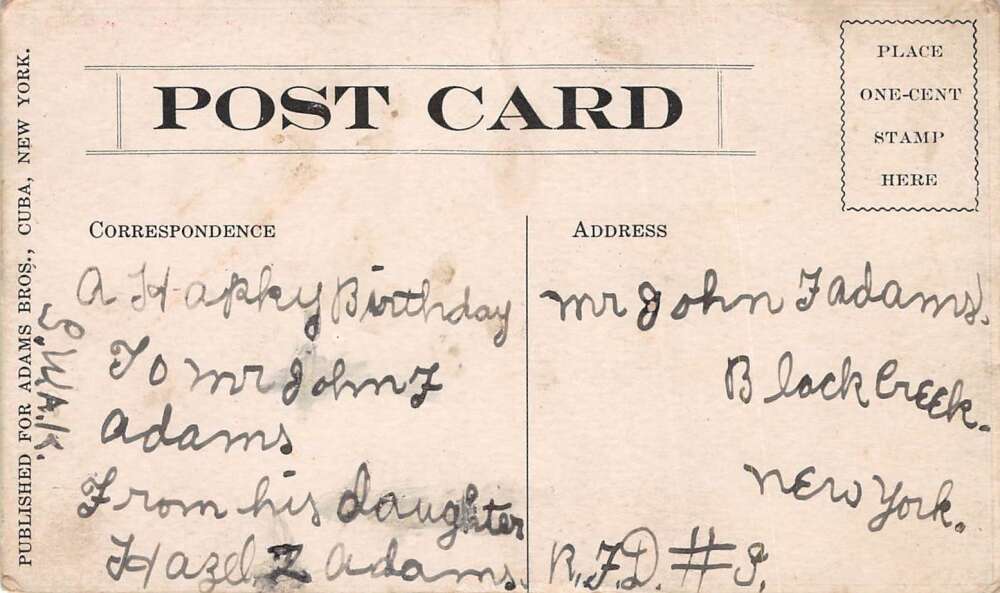 POST CARD
PLACE
ONE-CENT
STAMP
HERE
PUBLISHED FOR ADAMS BROS., CUBA, NEW YORK.
S.W.A.K.
CORRESPONDENCE
A Happy Birthday
To Mr John F
Adams
From his daughter
Hazel Z Adams.
ADDRESS
Mr John F Adams.
Black Creek.
New York.
R.F.D. #